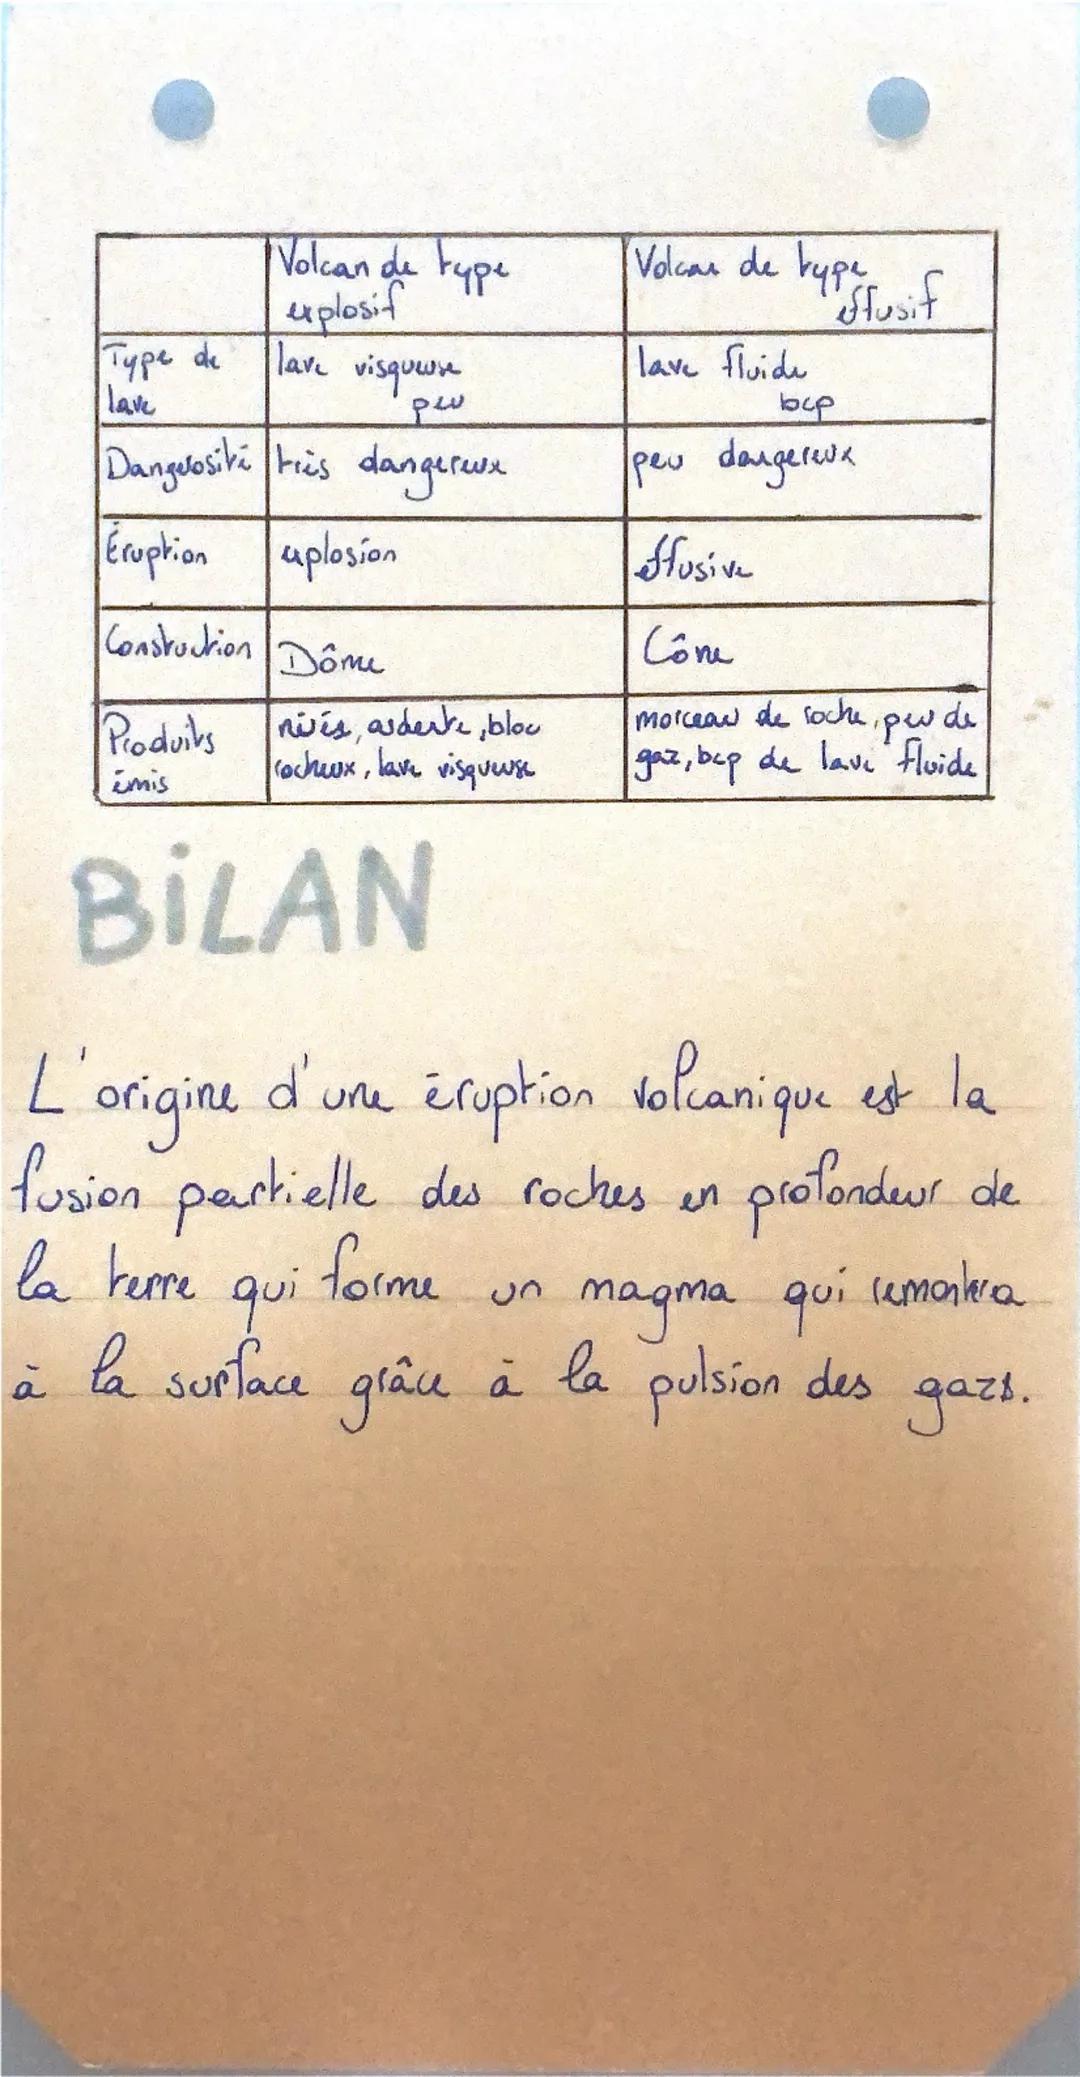 Volcan de type explosif | Volcan de type effusif
Type de lave | lave visqueuse peu | lave fluide bcp
Dangerosité | très dangereux | peu dangereux
Éruption | explosion | effusive
Construction | Dôme | Cône
Produits émis | nuées, ardente, bloc rocheux, lave visqueuse | morceau de roche, peu de gaz, bcp de lave fluide
BiLAN
L'origine d'une éruption volcanique est la
fusion partielle des roches en profondeur de
la terre qui forme un magma qui remontera
à la surface grâce à la pulsion des gazs.